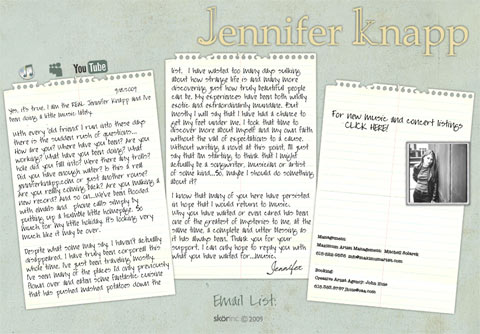 Jennifer Knapp
You Tube
9.15.2009
Yes, it's true. I am the REAL Jennifer Knapp and I've
been doing a little music lately.
With every 'old friend' I run into these days
there is the sudden rush of questions...
How are you? Where have you been? Are you
working? What have you been doing? What
hole did you fall into? Were there any trolls?
Did you have enough water? Is this a real
jenniferknapp.com or just another rouse?
Are you really coming back? Are you making a
new record? And so on...We've been flooded
with emails and phone calls simply by
putting up a humble little homepage. So
much for my little holiday. It's looking very
much like it may be over.
Despite what some may say, I haven't actually
disappeared. I have truly been corporeal this
whole time. I've just been traveling mostly.
I've seen many of the places I'd only previously
flown over and eaten some fantastic cuisine
that has pushed mashed potatoes down the
list. I have wasted too many days sulking
about how strange life is and many more
discovering just how truly beautiful people
can be. My experiences have been both wildly
exotic and extraordinarily mundane. But
mostly I will say that I have had a chance to
get my feet under me. I took that time to
discover more about myself and my own faith
without the veil of expectations to a cause.
Without writing a novel at this point, I'll just
say that I'm starting to think that I might
actually be a songwriter, musician or artist
of some kind...So, maybe I should do something
about it?
I know that many of you have persisted
in hope that I would return to music.
Why you have waited or even cared has been
one of the greatest of mysteries to me. At the
same time, a complete and utter blessing as
it has always been. Thank you for your
support. I can only hope to repay you with
what you have waited for...music.
Jennifer
For new music and concert listings
CLICK HERE!
Management:
Maximum Artist Management: Mitchell Solarek
Booking
Creative Artist Agency: John Huie
Email List:
skorinc © 2009